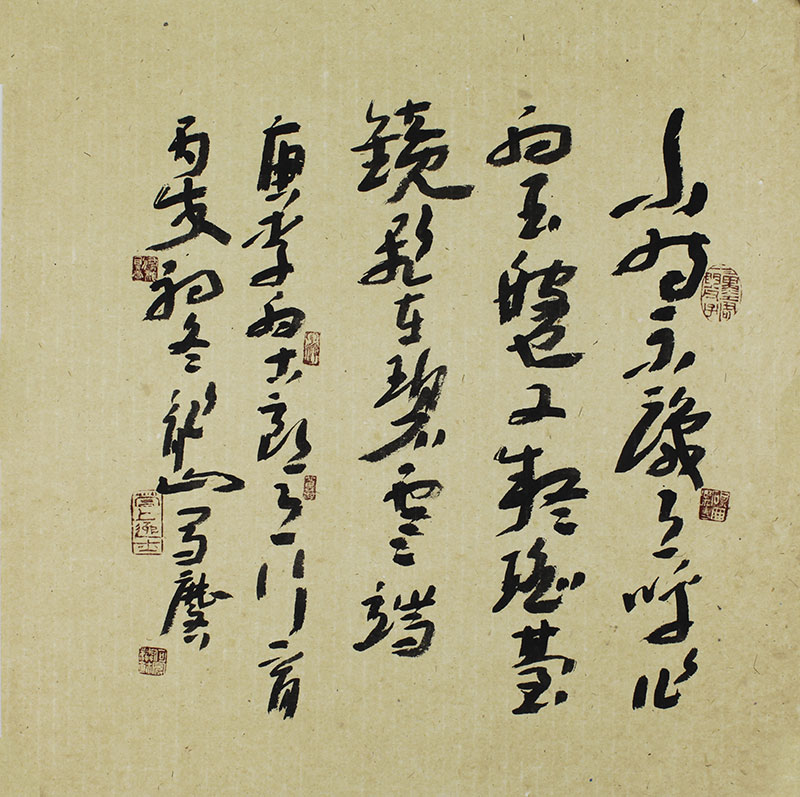 小時不識月呼作
白玉盤又疑瑤臺
鏡飛在碧雲端
唐李白古朗月行一首
丙戌初冬山